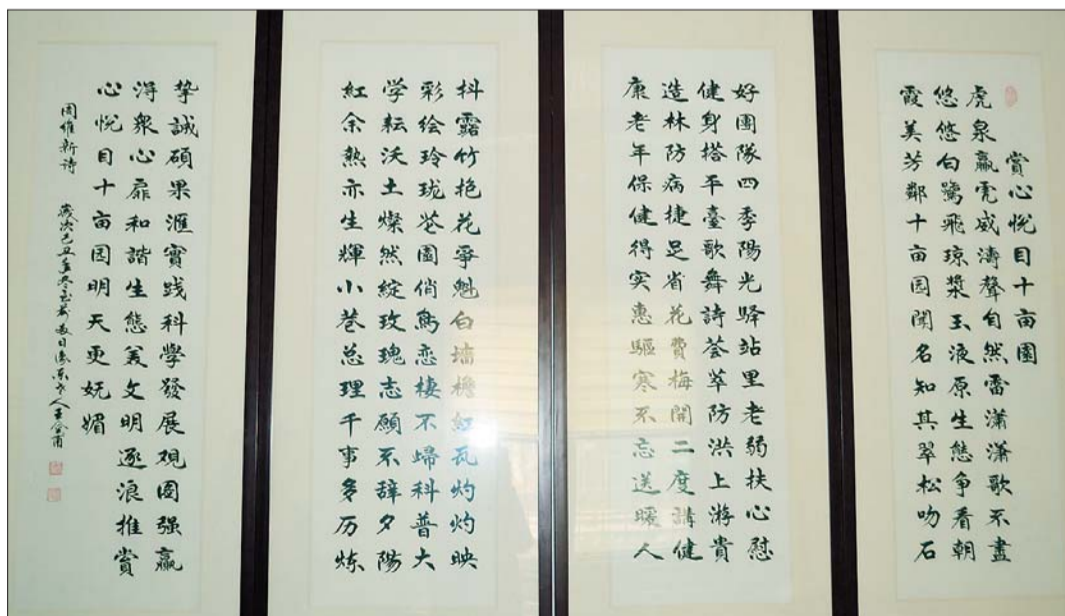 賞心悦目十亩園
虎泉贏虎威濤聲自然雷瀟瀟歌不盡
悠悠白鷺飛琼漿玉液原生態争看朝
霞美芳鄰十亩园闻名知其翠松吻石
好團隊四季陽光驿站里老弱扶心慰
健身搭平臺歌舞詩荟萃防洪上游貴
造林防病捷足省花費梅開二度講健
康老年保健得实惠驅寒不忘送暖人
抖露竹艳花爭魁白墙檐红瓦灼灼映
彩绘玲珑花園俏鳥恋棲不歸科普大
学耘沃土燦然綻玫瑰志願不辞夕陽
紅余熱亦生輝小巷总理千事多历炼
挚誠碩果滙實践科學發展观园强赢
淂衆心扉和諧生態美文明逐浪推賞
心悦目十亩园明天更妩媚
周維新诗
歲次己丑